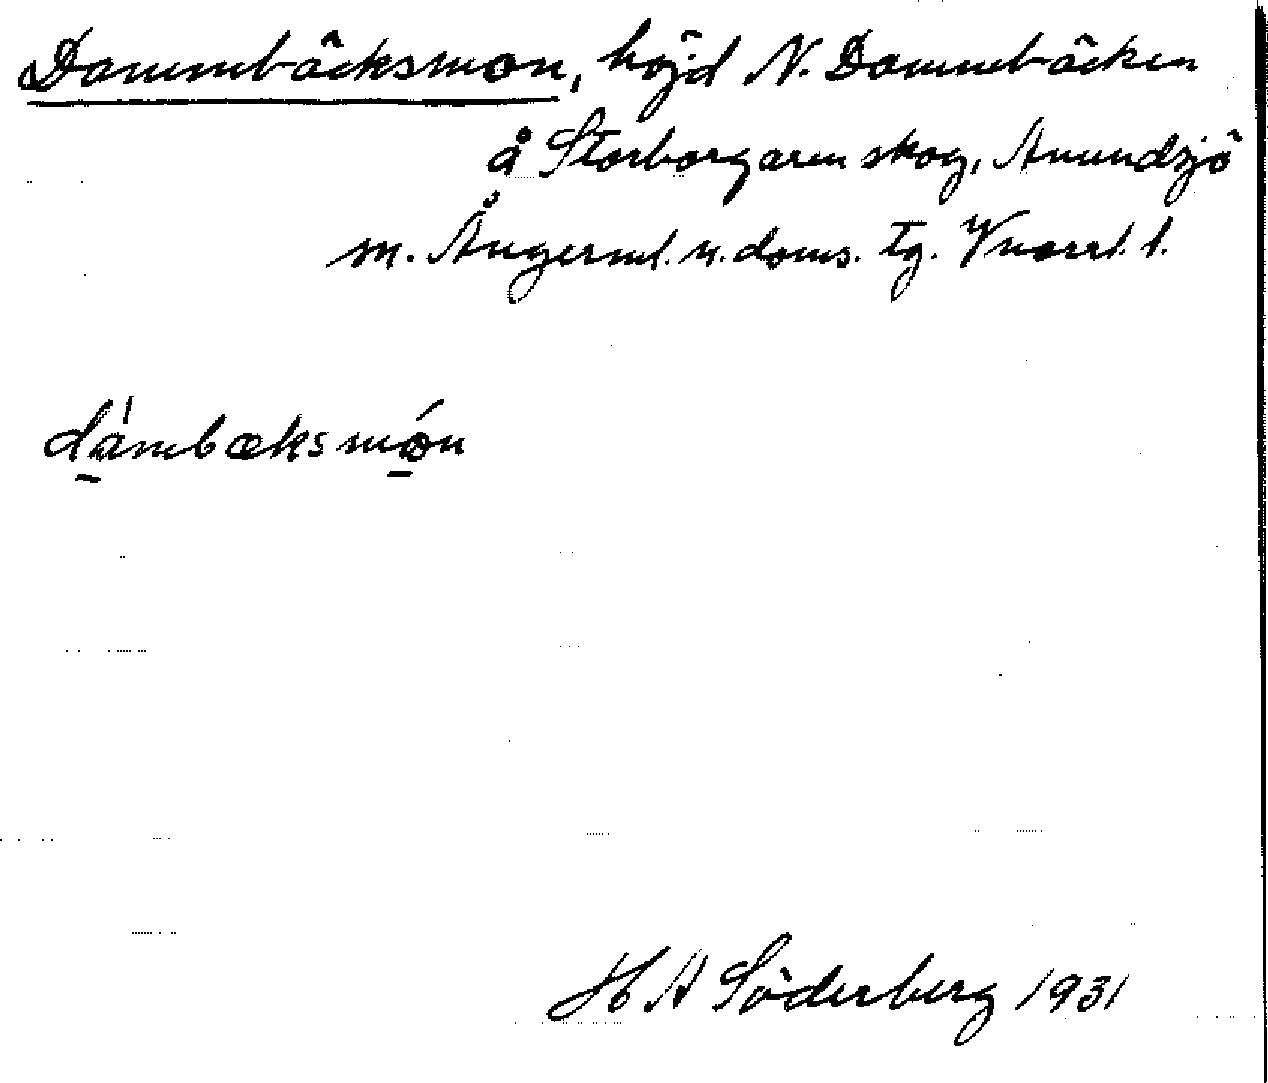 Dammbäcksmon, höjd N. Dammbäcken
å Storborgaren skog, Anundsjö
m. Ångerml. n. doms. tg. Vnorrl. l.
dämbæksmón
H A Söderberg 1931